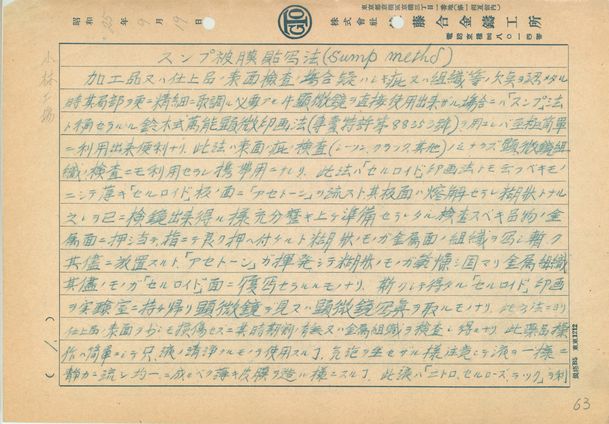 昭和25年9月19日
株式會社 藤合金鑄工所
小林工場
スンプ被膜貼写法(Sump method)
加工品又ハ仕上品ノ表面検査ノ場合疑ハシキ疵又ハ組織等ノ欠点ヲ認メタル
時其局部ヲ更ニ精細ニ取調ル必要アルモ顕微鏡ヲ直接使用出来ザル場合ニハ「スンプ法」
ト称セラルル鈴木式萬能顕微印画法(専賣特許第88532號)ヲ用ユレバ至極簡単
ニ利用出来便利ナリ 此法ハ表面ノ疵ノ検査(レーン、クラック、其他)ノミナラズ顕微鏡組
織ノ検査ニモ利用セラレ携帯用ニナレリ 此法ハ「セルロイド」印画法トモ云フベキモノ
ニシテ薄キ「セルロイド」板ノ面ニ「アセトーン」ヲ流スト其板面ハ熔解セラレ糊狀トナル
之レヲ已ニ検鏡出来得ル様充分磨キ上ゲ準備セラレタル検査スベキ品物ノ金
属面ニ押当テ、指ニテ良ク押ヘ付ケルト糊狀ノモノガ金属面ノ組織ヲ写シ暫ク
其儘ニ放置スルト、「アセトーン」ガ揮発シテ糊狀ノモノガ乾燥シ固マリ金属組織
其儘ノモノガ「セルロイド」面ニ複写セラルルモノナリ、斯クシテ得タル「セルロイド」印画
ヲ実験室ニ持チ帰リ顕微鏡ヲ見又ハ顕微鏡写真ヲ取ルモノナリ、此方法ニヨリ
仕上品ノ表面ヲ少シモ損傷セズニ其時ノ有無又ハ金属組織ヲ検査シ得ルナリ 此薬品操
作ハ簡単ニシテ只、液ノ清浄ナルモノヲ使用スル事、気泡ヲ生セザル様注意シテ液ヲ一様ニ
静カニ流シ均一ニ成ルベク薄キ皮膜ヲ造ル様ニスル事、此液ハ「ニトロ、セルローズ、ラック」ヲ利
(1)
63